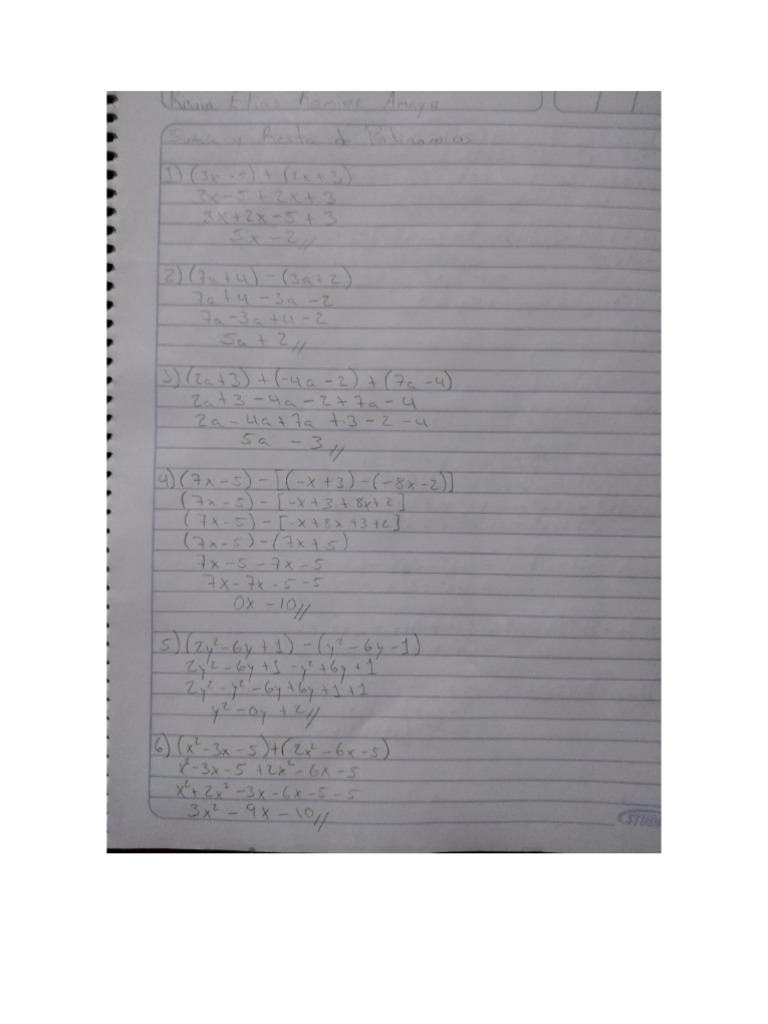 Kevin Elias Ramirez Amaya
Suma y Resta de Polinomios
1) (3x - 5) + (2x + 3)
3x - 5 + 2x + 3
3x + 2x - 5 + 3
5x - 2 //
2) (7a + 4) - (3a + 2)
7a + 4 - 3a - 2
7a - 3a + 4 - 2
5a + 2 //
3) (2a + 3) + (-4a - 2) + (7a - 4)
2a + 3 - 4a - 2 + 7a - 4
2a - 4a + 7a + 3 - 2 - 4
5a - 3 //
4) (7x - 5) - [(-x + 3) - (-8x - 2)]
(7x - 5) - [-x + 3 + 8x + 2]
(7x - 5) - [-x + 8x + 3 + 2]
(7x - 5) - (7x + 5)
7x - 5 - 7x - 5
7x - 7x - 5 - 5
0x - 10 //
5) (2y² - 6y + 1) - (y² - 6y - 1)
2y² - 6y + 1 - y² + 6y + 1
2y² - y² - 6y + 6y + 1 + 1
y² - 0y + 2 //
6) (x² - 3x - 5) + (2x² - 6x - 5)
x² - 3x - 5 + 2x² - 6x - 5
x² + 2x² - 3x - 6x - 5 - 5
3x² - 9x - 10 //